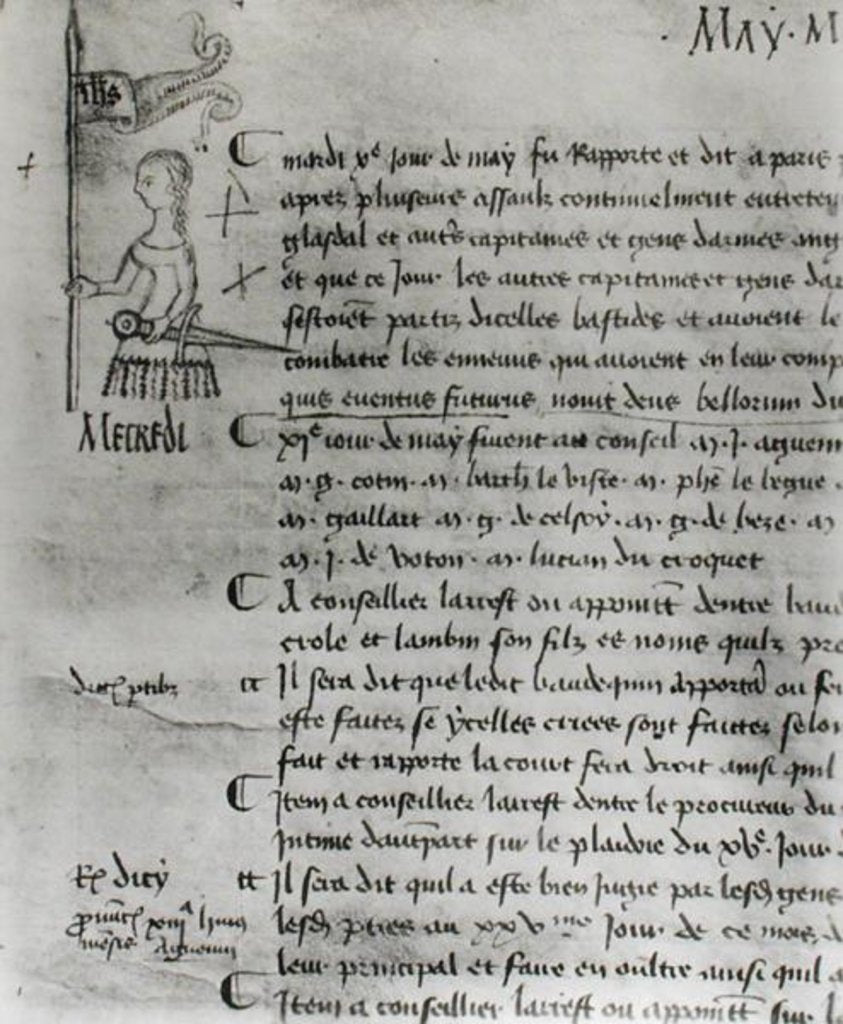 May. M
ihs
mardi xe jour de may fu Rapporte et dit a paris
apres pluseurs assaulz continuelment entrete
glasdal et autrs capitaines et gens darmes ang
et que ce jour les autres capitaines et gens dar
sestoient partiz dicelles bastides et avoient le
combatre les ennemis qui avoient en leur comp
quis eventus futurus novit deus bellorum du
Mecredi
xie jour de may furent au conseil m. J. aguenin
m. g. cotin m. barth le viste. m. phe le begue
m. gaillart m. g. de celsoy. m. g. de beze. m
m. J. de voton. m. lucian du croquet
A conseillier larrest ou appointt dentre
et lambin son filz es noms quilz
Il sera dit que ledit baudequin apporta ou
este faites se ycelles criees sont faittes selon
fait et rapporte la court fera droit ainsi quil
Item a conseillier larrest dentre le procureur du
Intime dautrepart sur le plaidoie du xve. Jour
Il sera dit quil a este bien Jugie par lesd gens
lesd pties au xxvme Jour de ce mois
leur principal et faire en oultre ainsi quil
Item a conseillier larrest ou appointt sur